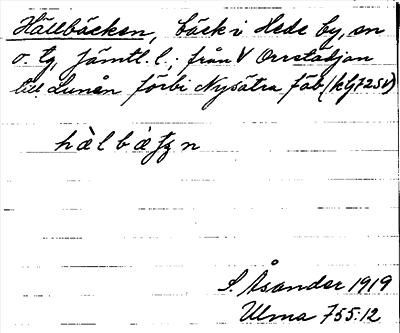 Hällbäcken, bäck i Hede by, sn
o. tg, Jämtl. l.; från V Orrstädjan
till Lunån förbi Nysätra fäb (kbl 72SV)
hàlbætʃn
S. Åsander 1919
Ulma 755:12